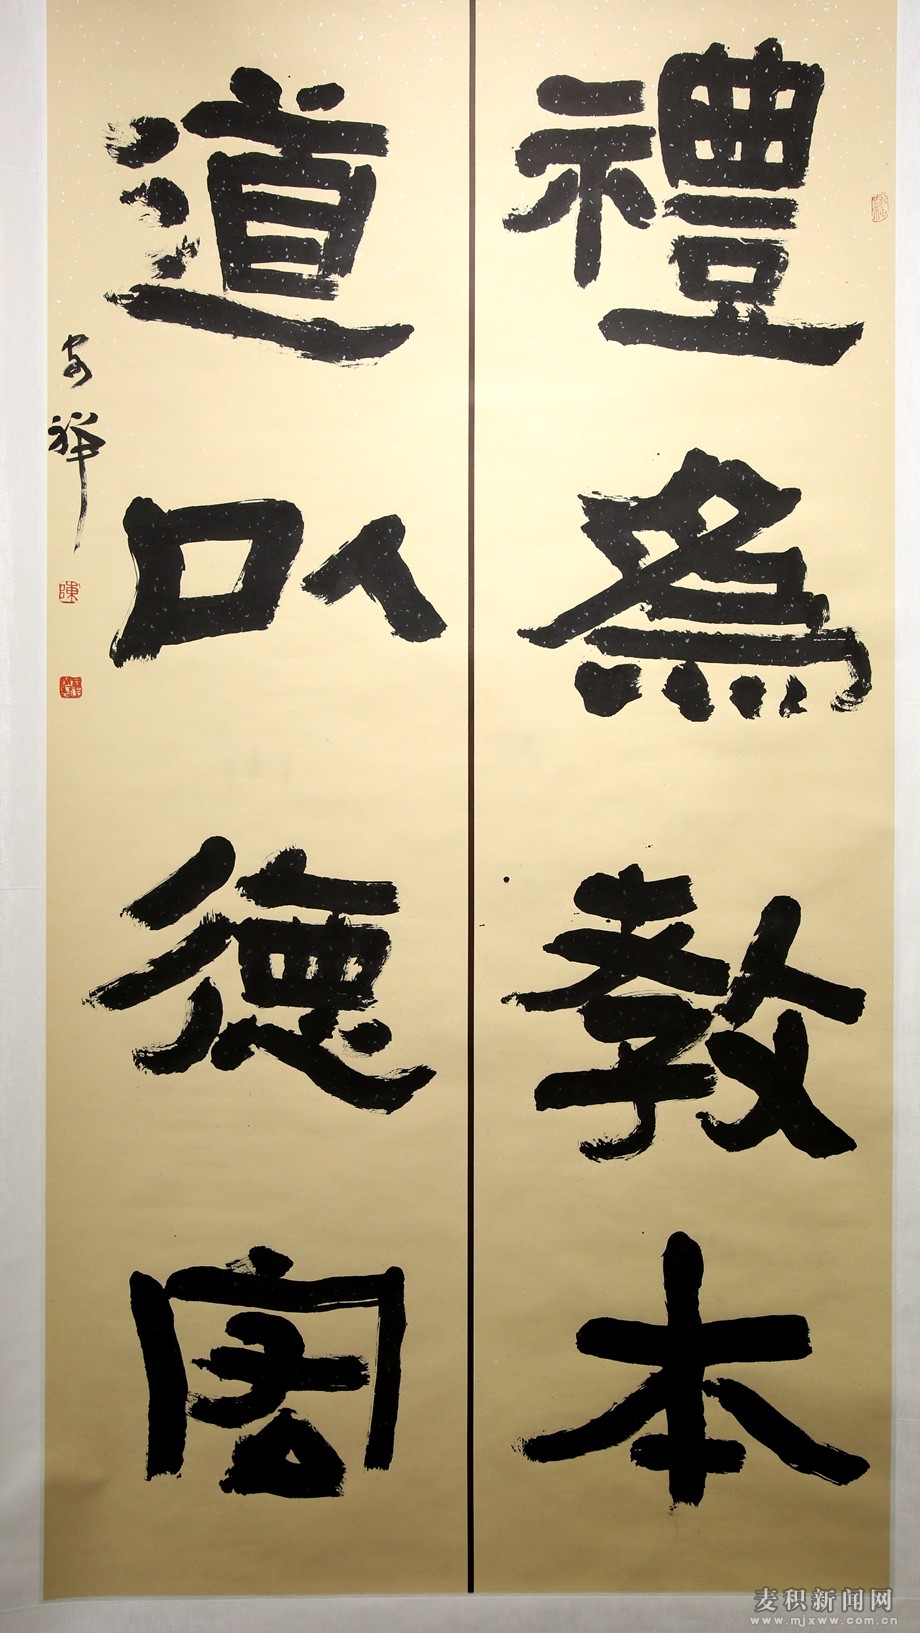 禮爲教本
道以德宏
祥
陳
麦积新闻网
www.mjxww.com.cn